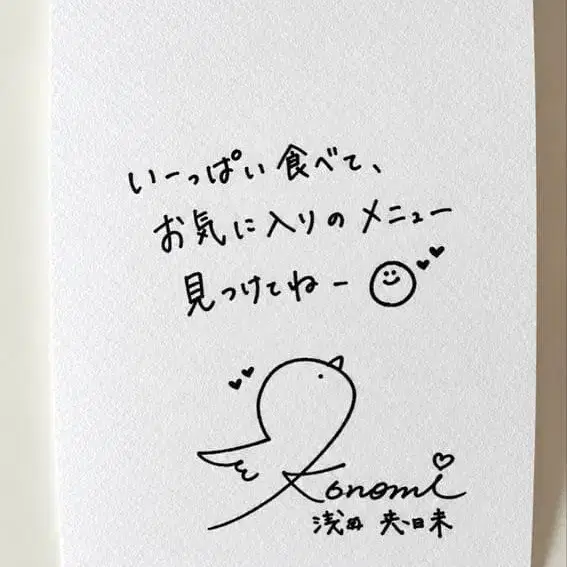 いーっぱい食べて、
お気に入りのメニュー
見つけてねー
Konomi